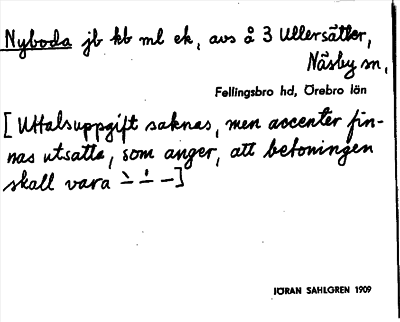 Nyboda jb kb ml ek, avs å 3 Ullersätter,
Näsby sn,
Fellingsbro hd, Örebro län
[Uttalsuppgift saknas, men accenter fin-
nas utsatta, som anger, att betoningen
skall vara
JÖRAN SAHLGREN 1909